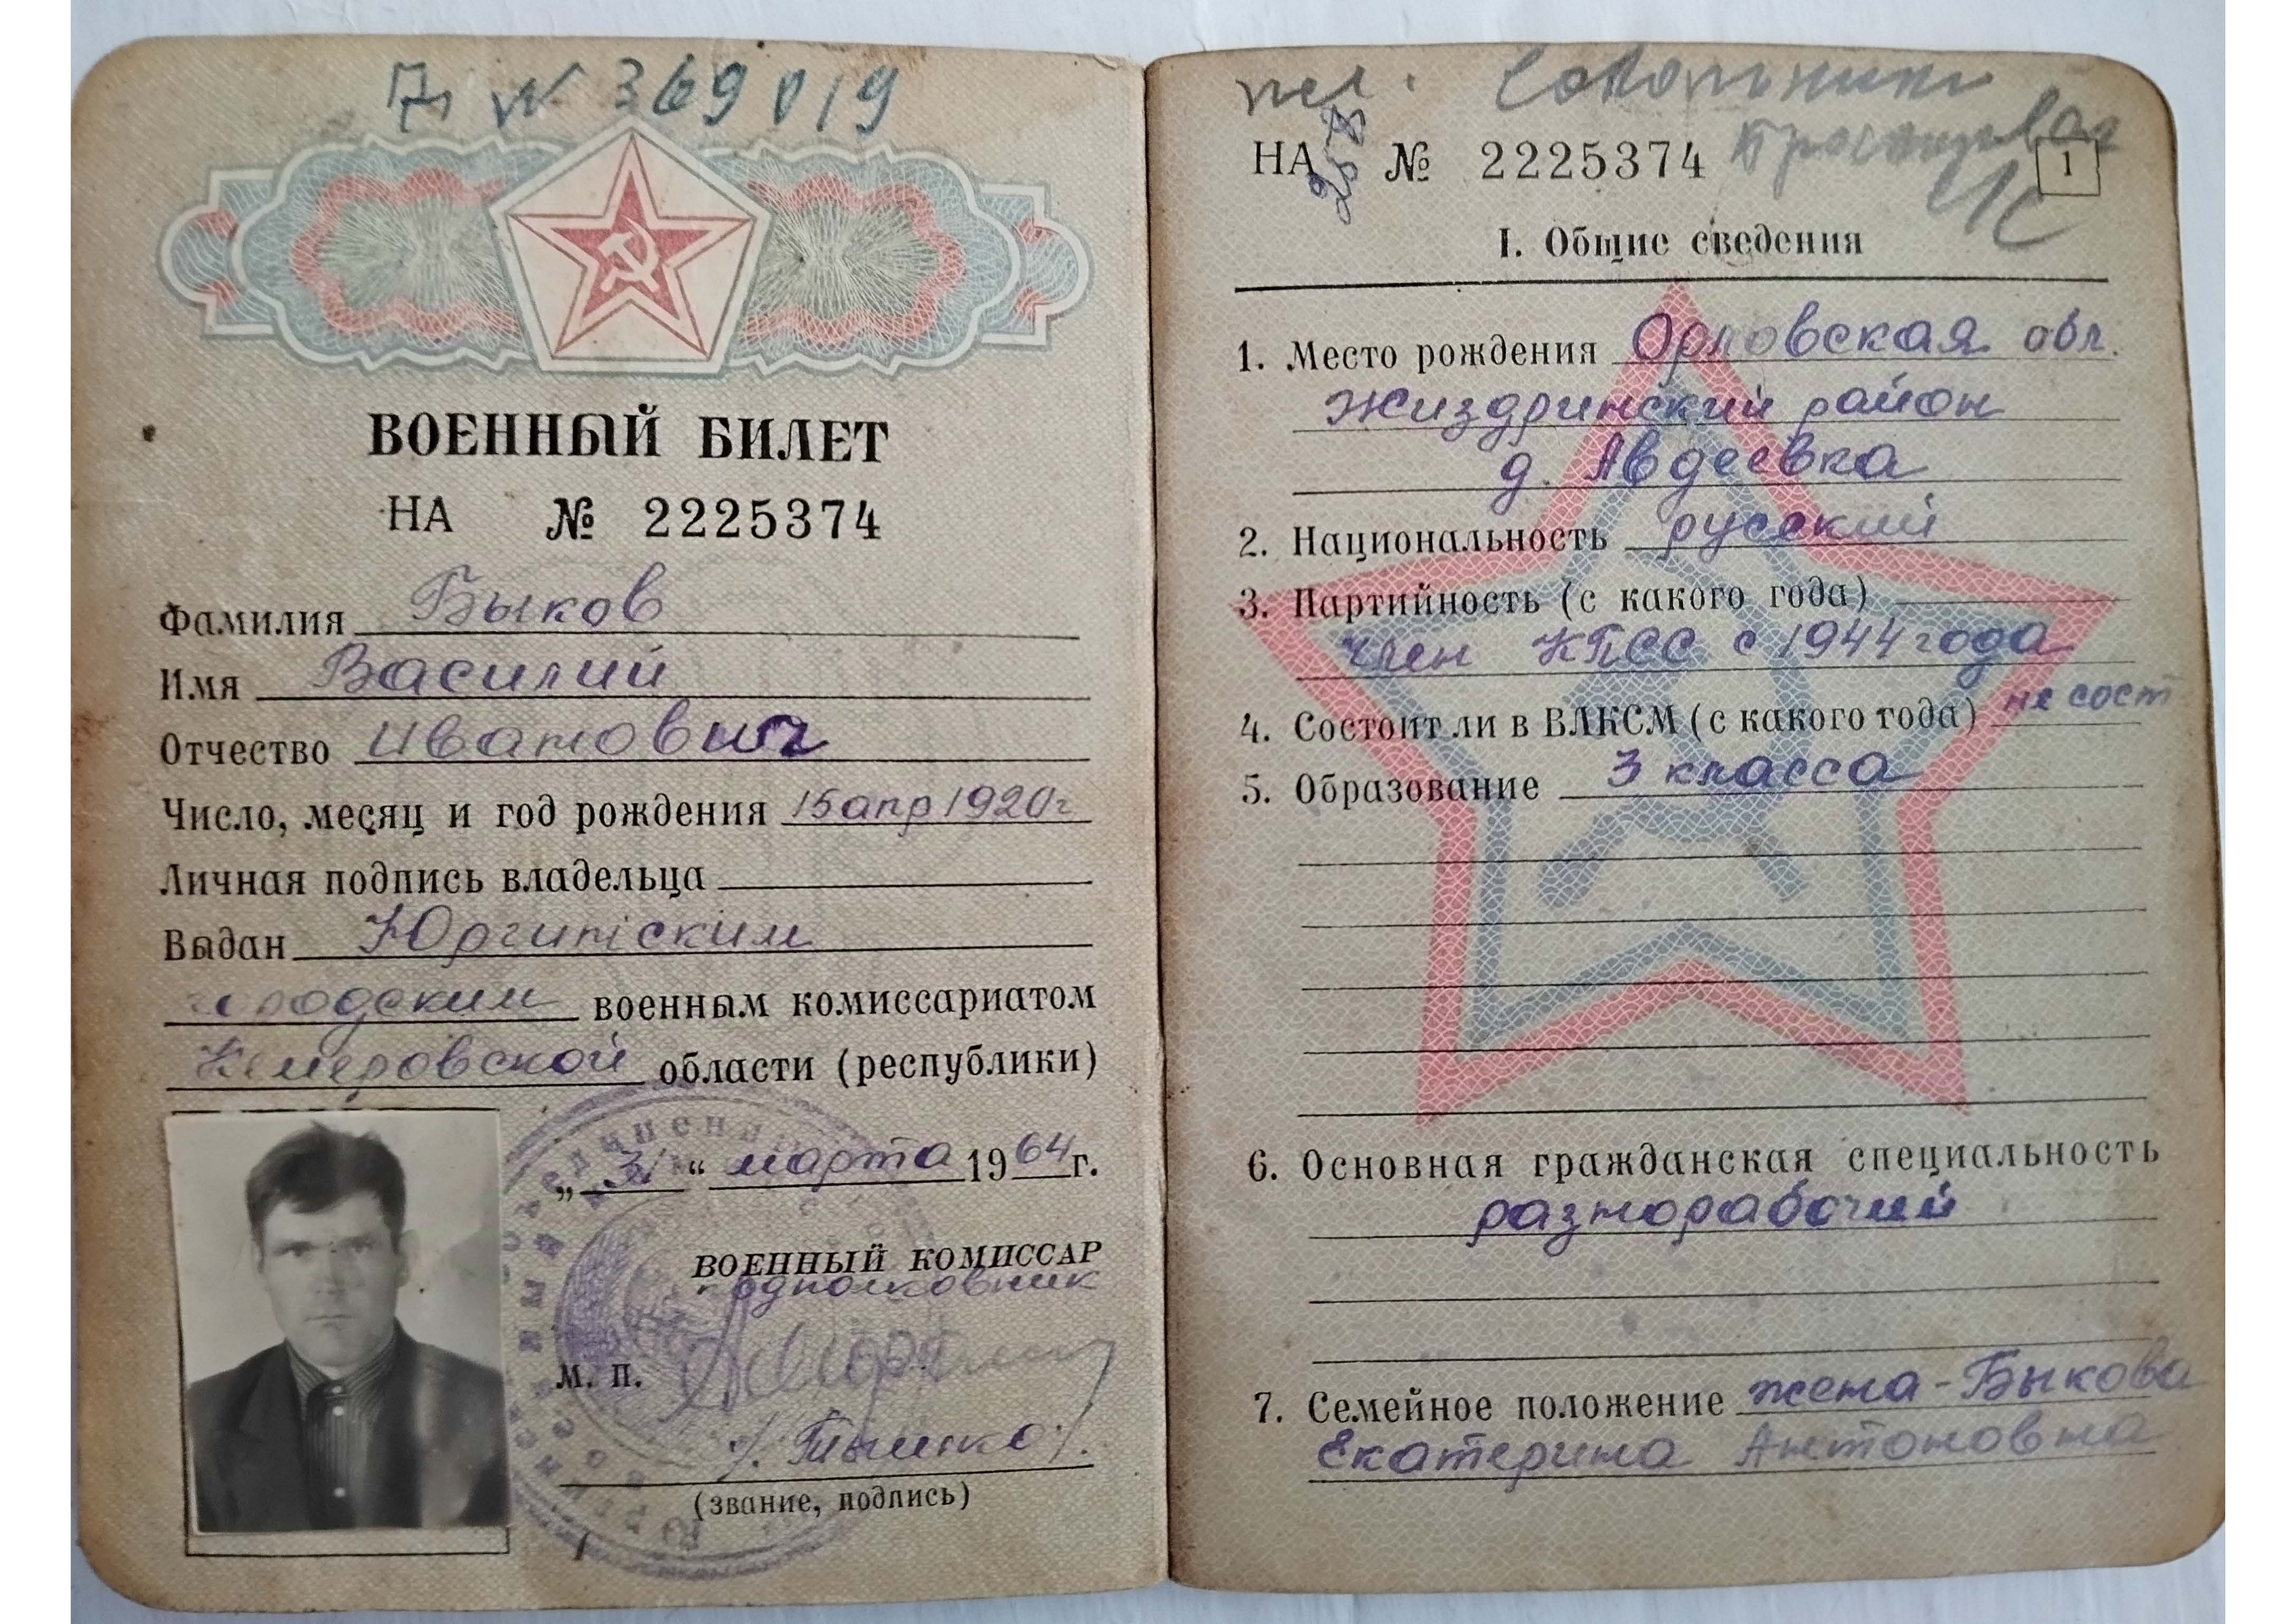 № 369019
ВОЕННЫЙ БИЛЕТ
НА № 2225374
Фамилия Быков
Имя Василий
Отчество Иванович
Число, месяц и год рождения 15 апр 1920 г
Личная подпись владельца
Выдан Юргинским
городским военным комиссариатом
Кемеровской области (республики)
„31“ марта 1964 г.
ВОЕННЫЙ КОМИССАР
подполковник
М. П.
(звание, подпись)
НА № 2225374
1
I. Общие сведения
1. Место рождения Орловская обл.
Жиздринский район
д. Авдеевка
2. Национальность русский
3. Партийность (с какого года)
член КПСС с 1944 года
4. Состоит ли в ВЛКСМ (с какого года) не сост
5. Образование 3 класса
6. Основная гражданская специальность
разнорабочий
7. Семейное положение жена - Быкова
Екатерина Антоновна